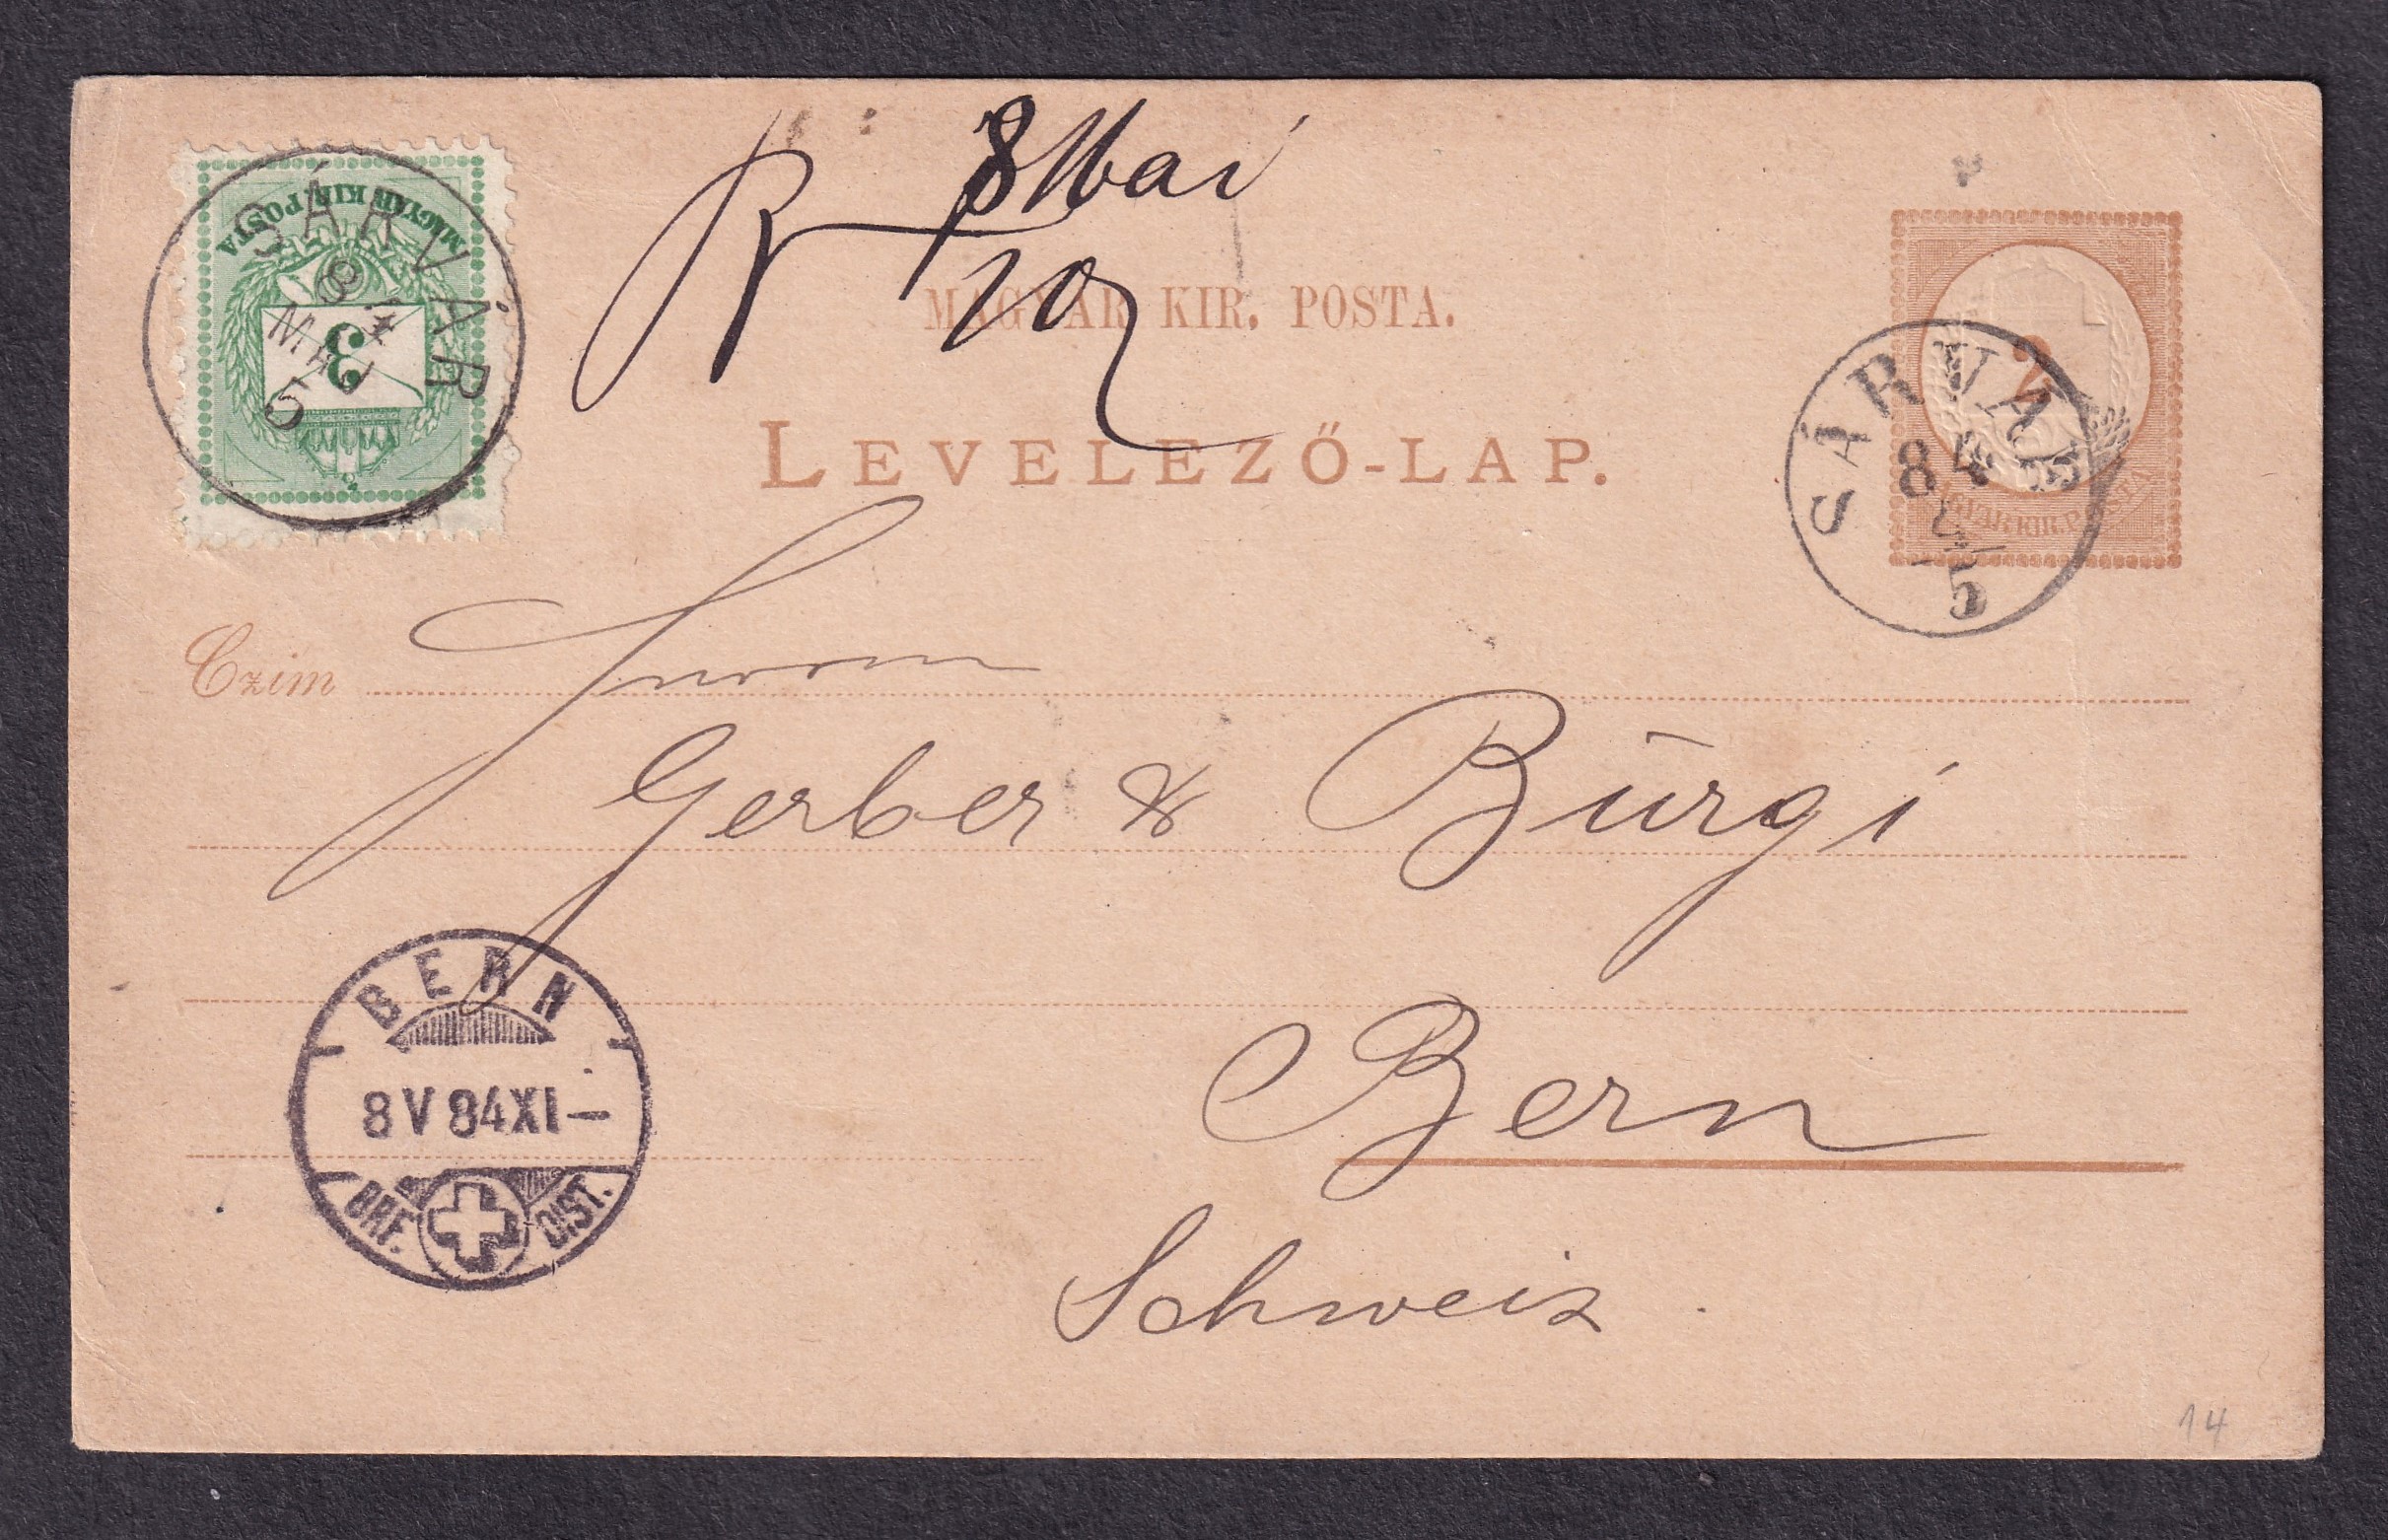 8 Mai
10
MAGYAR KIR. POSTA.
LEVELEZŐ-LAP.
MAGYAR KIR POSTA
3
SÁRVÁR
84
MÁJ
5
2
MAGYAR KIR. POSTA
SÁRVÁR
84
5
Czim
Herren
Gerber & Bürgi
Bern
Schweiz
BERN
8 V 84 XI –
BRF. DIST.
14